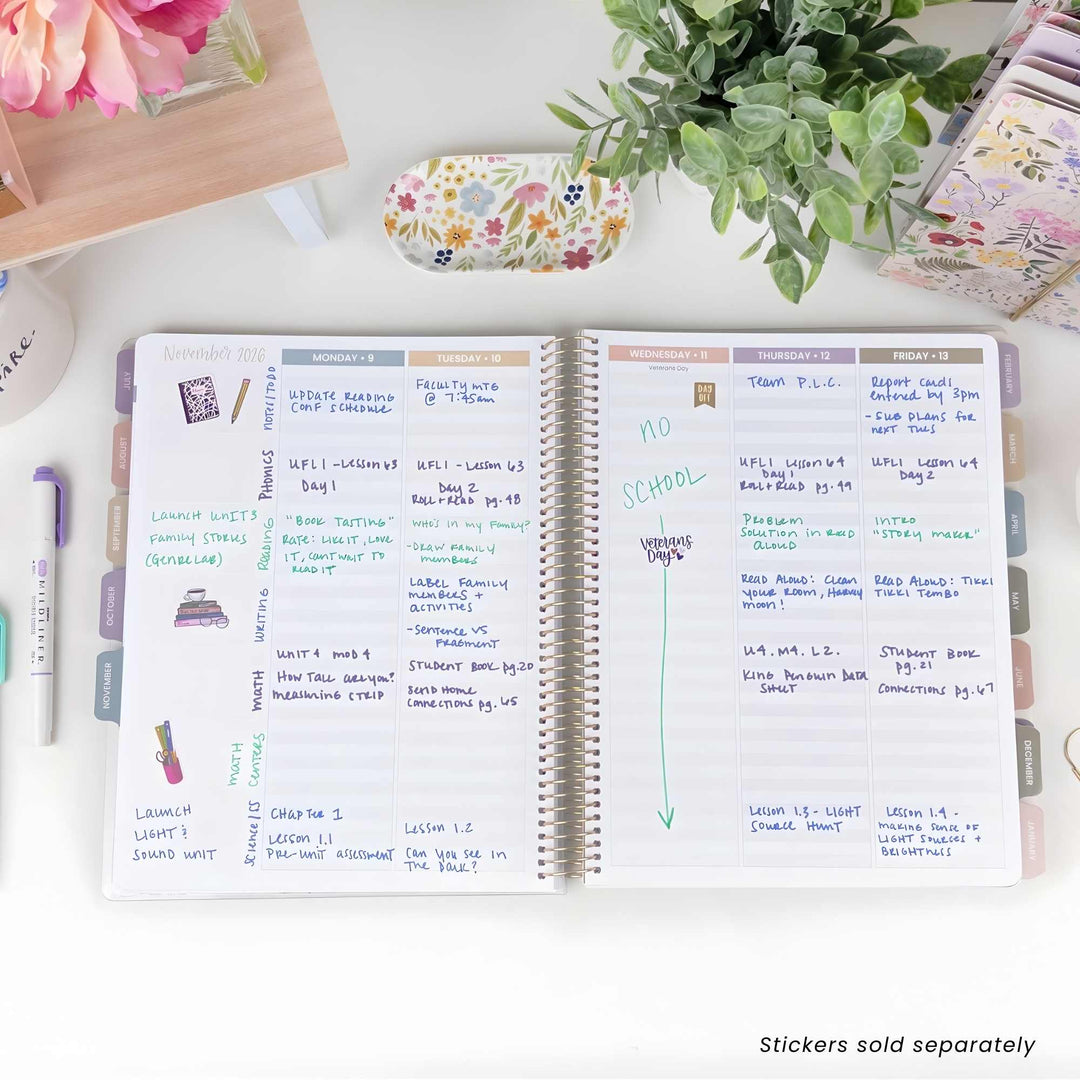 November 2026
MONDAY • 9
TUESDAY • 10
WEDNESDAY • 11
THURSDAY • 12
FRIDAY • 13
Veterans Day
NOTES/TODO
UPDATE READING
CONF SCHEDULE
FACULTY MTG
@ 7:45am
DAY
OFF
TEAM P.L.C.
Report Cards
entered by 3pm
- SUB PLANS for
next TUES
PHONICS
UFLI - Lesson 63
Day 1
UFLI - Lesson 63
Day 2
ROLL + READ pg. 48
NO
SCHOOL
Veterans
Day
UFLI Lesson 64
Day 1
ROLL + READ pg. 49
UFLI Lesson 64
Day 2
LAUNCH UNIT 3
FAMILY STORIES
(GENRE LAB)
READING
"BOOK TASTING"
RATE: LIKE IT, LOVE
IT, CANT WAIT TO
READ IT
WHO'S IN MY FAMILY?
- DRAW FAMILY
members
Problem
Solution in READ
ALOUD
INTRO
"STORY MAKER"
WRITING
LABEL FAMILY
members +
ACTIVITIES
- Sentence VS
FRAGMENT
READ ALOUD: Clean
YOUR ROOM, HARVEY
MOON!
READ ALOUD: TIKKI
TIKKI TEMBO
MATH
UNIT 4 MOD 4
HOW TALL ARE YOU?
measuring STRIP
STUDENT BOOK pg. 20
SEND HOME
CONNECTIONS pg. 65
U4. M4. L2.
KING PENGUIN DATA
SHEET
STUDENT BOOK
pg. 21
CONNECTIONS pg. 67
MATH
CENTERS
LAUNCH
LIGHT &
SOUND UNIT
SCIENCE/SS
CHAPTER 1
Lesson 1.1
PRE-UNIT ASSESSMENT
Lesson 1.2
CAN YOU SEE IN
THE DARK?
Lesson 1.3 - LIGHT
SOURCE HUNT
Lesson 1.4 -
MAKING SENSE OF
LIGHT SOURCES +
BRIGHTNESS
JULY
AUGUST
SEPTEMBER
OCTOBER
NOVEMBER
FEBRUARY
MARCH
APRIL
MAY
JUNE
DECEMBER
JANUARY
MILDLINER
Stickers sold separately